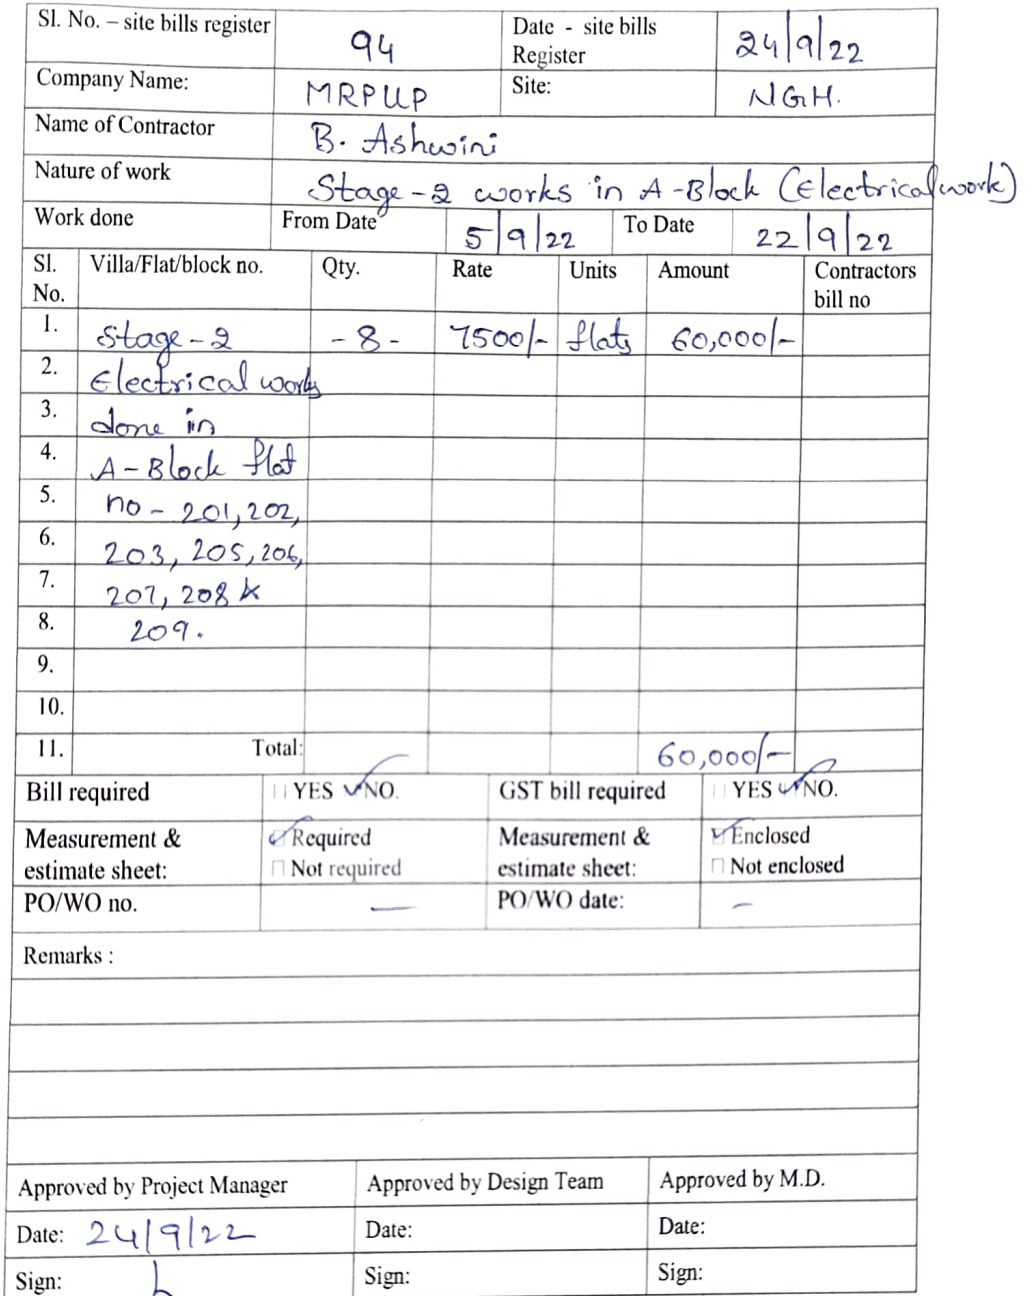 Sl. No. – site bills register 94 Date - site bills Register 24/9/22
Company Name: MRPUP Site: NGH.
Name of Contractor B. Ashwini
Nature of work Stage-2 works in A-Block (Electrical work)
Work done From Date 5/9/22 To Date 22/9/22
Sl. No. Villa/Flat/block no. Qty. Rate Units Amount Contractors bill no
1. Stage-2 -8- 7500/- flats 60,000/-
2. Electrical works
3. done in
4. A-Block flat
5. no - 201, 202,
6. 203, 205, 206,
7. 207, 208 &
8. 209.
9.
10.
11. Total: 60,000/-
Bill required YES NO. GST bill required YES NO.
Measurement & estimate sheet: Required Not required Measurement & estimate sheet: Enclosed Not enclosed
PO/WO no. — PO/WO date: –
Remarks :
Approved by Project Manager Approved by Design Team Approved by M.D.
Date: 24/9/22 Date: Date:
Sign: Sign: Sign: